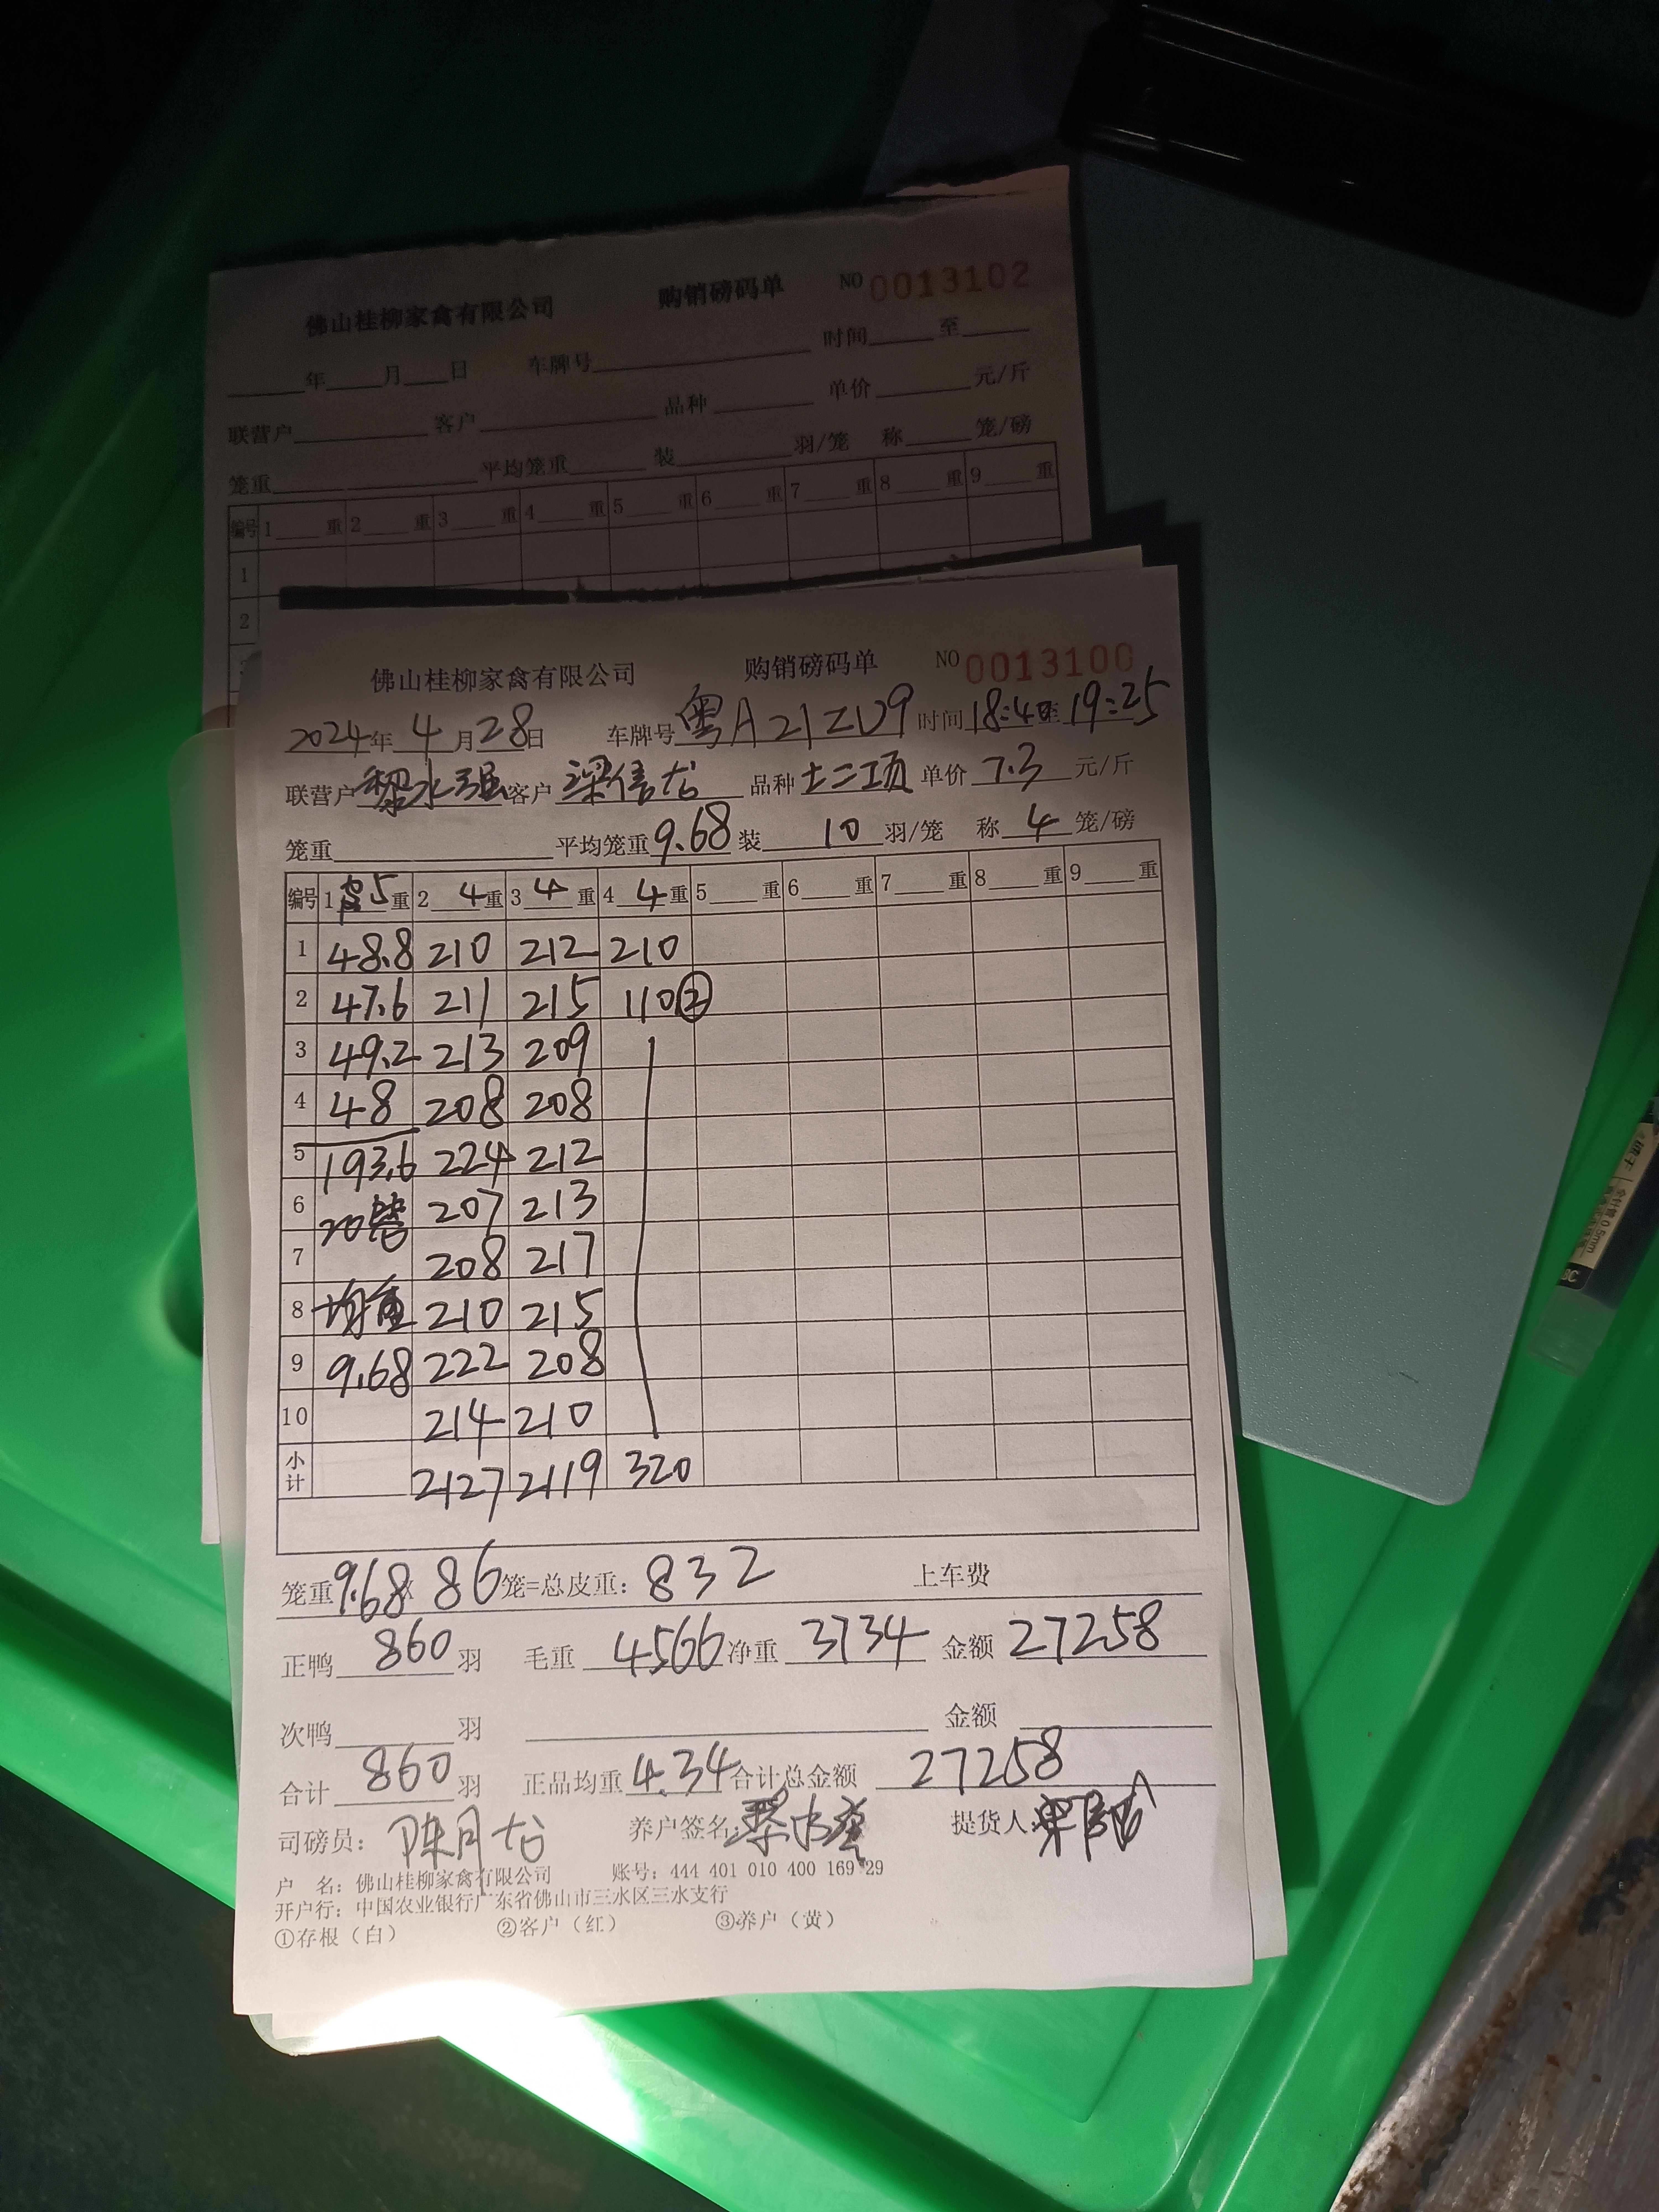 佛山桂柳家禽有限公司 购销磅码单 NO 0013102
年 月 日 车牌号 时间 至
联营户 客户 品种 单价 元/斤
笼重 平均笼重 装 羽/笼 称 笼/磅
编号 1 重 2 重 3 重 4 重 5 重 6 重 7 重 8 重 9 重
1
2
佛山桂柳家禽有限公司 购销磅码单 NO 0013100
2024年 4 月 28 日 车牌号 粤A21ZU9 时间 18:40至 19:25
联营户 黎水强 客户 梁信龙 品种 土二项 单价 7.3 元/斤
笼重 平均笼重 9.68 装 10 羽/笼 称 4 笼/磅
编号 1 皮5 重 2 4 重 3 4 重 4 4 重 5 重 6 重 7 重 8 重 9 重
1 48.8 210 212 210
2 47.6 211 215 110②
3 49.2 213 209
4 48 208 208
5 193.6 224 212
6 20 207 213
7 208 217
8 均重 210 215
9 9.68 222 208
10 214 210
小计 2127 2119 320
笼重 9.68 × 86 笼=总皮重: 832 上车费
正鸭 860 羽 毛重 4566 净重 3734 金额 27258
次鸭 羽 金额
合计 860 羽 正品均重 4.34 合计总金额 27258
司磅员: 陈月龙 养户签名: 提货人:
户 名: 佛山桂柳家禽有限公司 账号: 444 401 010 400 169 29
开户行: 中国农业银行广东省佛山市三水区三水支行
①存根（白） ②客户（红） ③养户（黄）
0.5mm